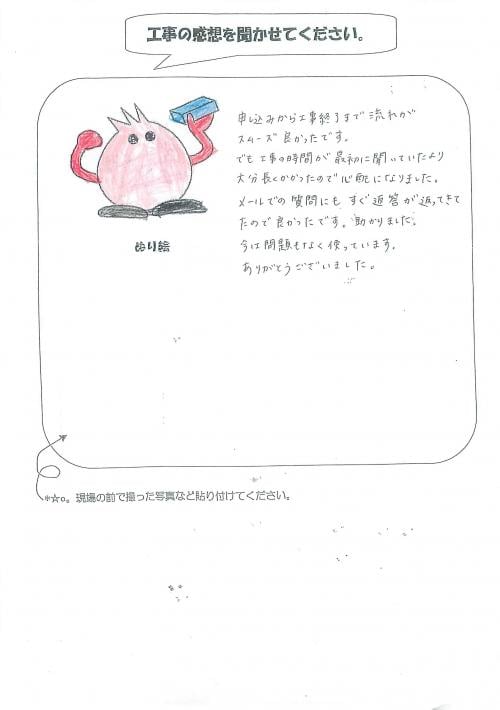 工事の感想を聞かせてください。
申し込みから工事終了まで流れが
スムーズ良かったです。
でも工事の時間が最初に聞いていたより
大分長くかかったので心配になりました。
メールでの質問にもすぐ返答が返ってきて
たので良かったです。助かりました。
今は問題もなく使っています。
ありがとうございました。
ぬり絵
*☆o。現場の前で撮った写真など貼り付けてください。